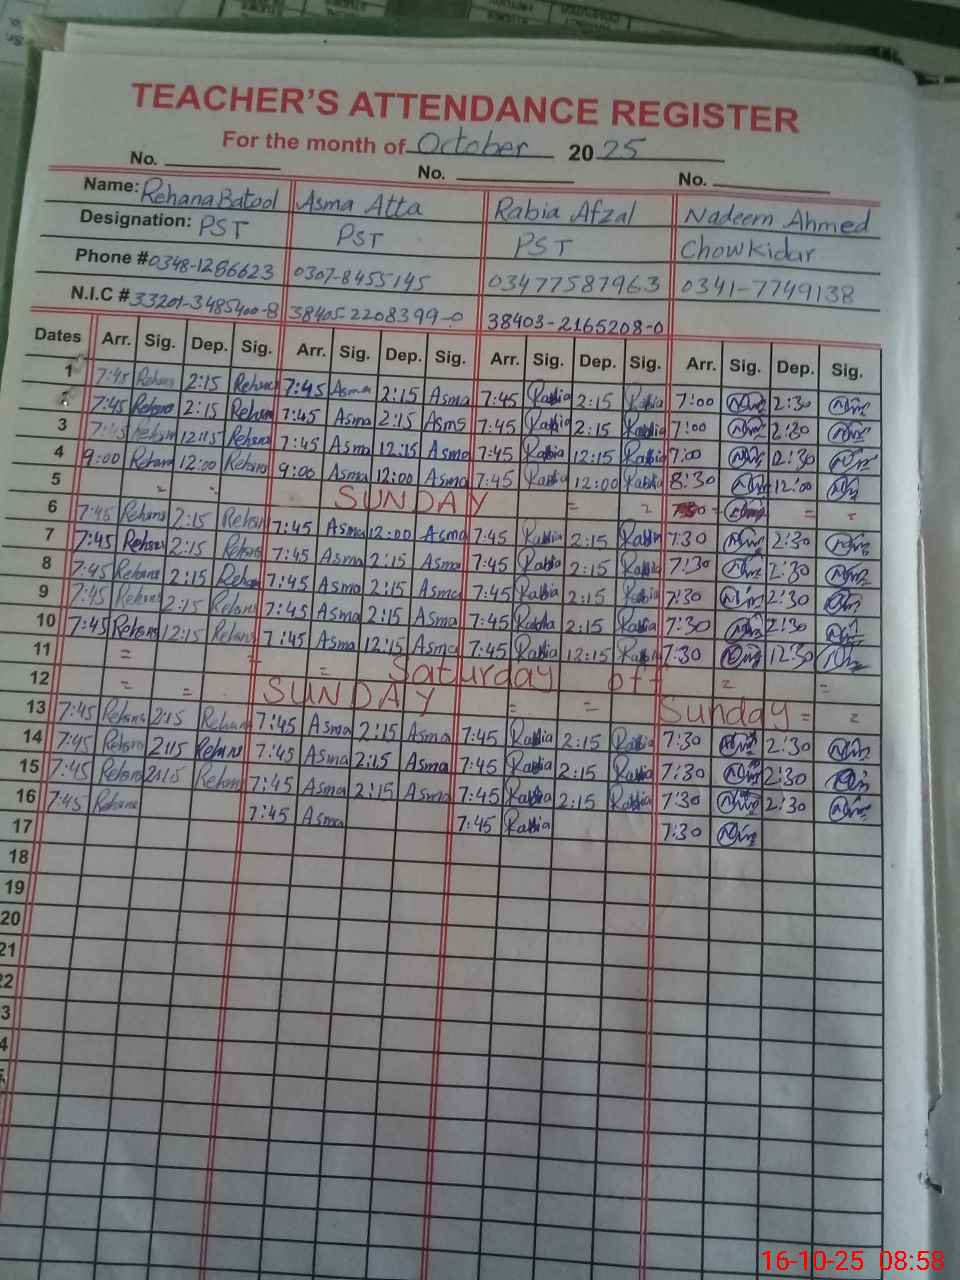 TEACHER'S ATTENDANCE REGISTER
For the month of October 2025
No. No. No.
Name: Rehana Batool Asma Atta Rabia Afzal Nadeem Ahmed
Designation: PST PST PST Chowkidar
Phone # 0348-1286623 0307-8455145 03477587963 0341-7749138
N.I.C # 33201-3485400-8 38405-2208399-0 38403-2165208-0
Dates Arr. Sig. Dep. Sig. Arr. Sig. Dep. Sig. Arr. Sig. Dep. Sig. Arr. Sig. Dep. Sig.
1 7:45 Rehana 2:15 Rehana 7:45 Asma 2:15 Asma 7:45 Rabia 2:15 Rabia 7:00 2:30
2 7:45 Rehana 2:15 Rehana 7:45 Asma 2:15 Asma 7:45 Rabia 2:15 Rabia 7:00 2:30
3 7:45 Rehana 12:15 Rehana 7:45 Asma 12:15 Asma 7:45 Rabia 12:15 Rabia 7:00 12:30
4 9:00 Rehana 12:00 Rehana 9:00 Asma 12:00 Asma 7:45 Rabia 12:00 Rabia 8:30 12:00
5 = = SUNDAY = = = =
6 7:45 Rehana 2:15 Rehana 7:45 Asma 12:00 Asma 7:45 Rabia 2:15 Rabia 7:30 2:30
7 7:45 Rehana 2:15 Rehana 7:45 Asma 2:15 Asma 7:45 Rabia 2:15 Rabia 7:30 2:30
8 7:45 Rehana 2:15 Rehana 7:45 Asma 2:15 Asma 7:45 Rabia 2:15 Rabia 7:30 2:30
9 7:45 Rehana 2:15 Rehana 7:45 Asma 2:15 Asma 7:45 Rabia 2:15 Rabia 7:30 2:30
10 7:45 Rehana 12:15 Rehana 7:45 Asma 12:15 Asma 7:45 Rabia 12:15 Rabia 7:30 12:30
11 = = = Saturday off = =
12 = = SUNDAY = = Sunday = =
13 7:45 Rehana 2:15 Rehana 7:45 Asma 2:15 Asma 7:45 Rabia 2:15 Rabia 7:30 2:30
14 7:45 Rehana 2:15 Rehana 7:45 Asma 2:15 Asma 7:45 Rabia 2:15 Rabia 7:30 2:30
15 7:45 Rehana 2:15 Rehana 7:45 Asma 2:15 Asma 7:45 Rabia 2:15 Rabia 7:30 2:30
16 7:45 Rehana 7:45 Asma 7:45 Rabia 7:30
17
18
19
20
21
22
3
4
16-10-25 08:58